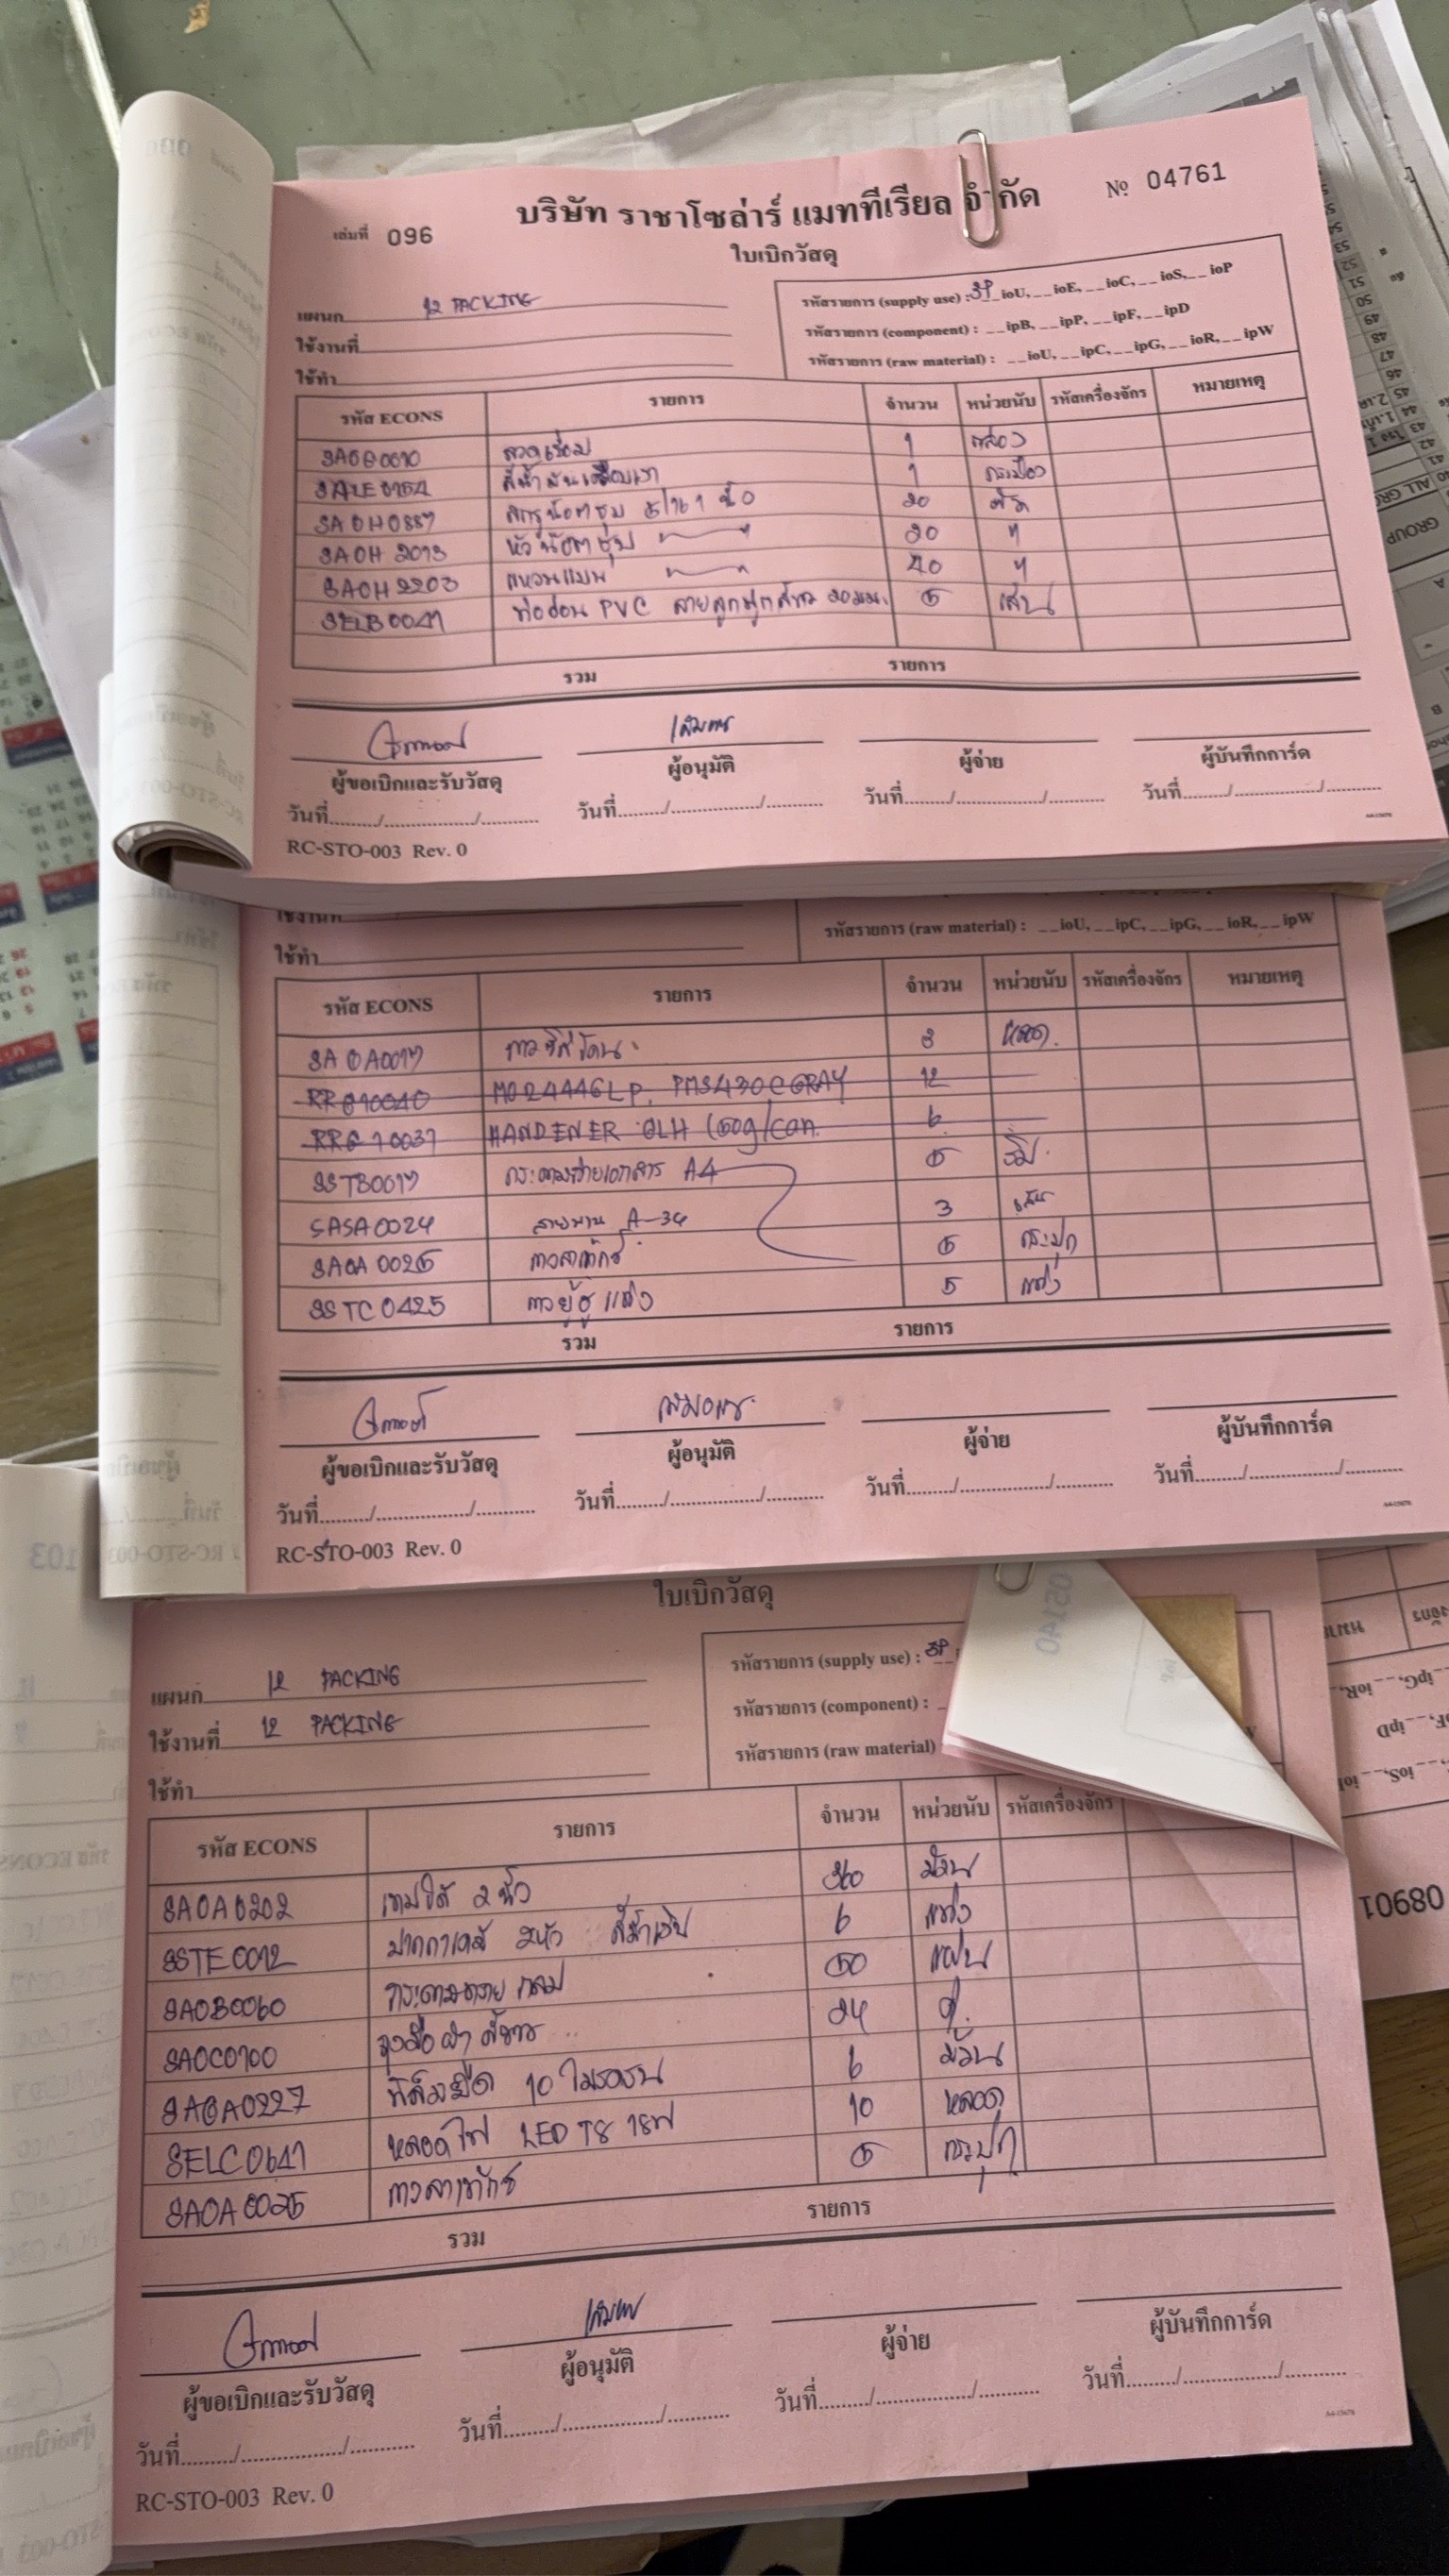 เล่มที่ 096
บริษัท ราชาโซล่าร์ แมททีเรียล จำกัด
№ 04761
ใบเบิกวัสดุ
แผนก 12 PACKING
ใช้งานที่
ใช้ทำ
รหัสรายการ (supply use) : SP__ioU, __ioE, __ioC, __ioS, __ioP
รหัสรายการ (component) : __ipB, __ipP, __ipF, __ipD
รหัสรายการ (raw material) : __ioU, __ipC, __ipG, __ioR, __ipW
รหัส ECONS รายการ จำนวน หน่วยนับ รหัสเครื่องจักร หมายเหตุ
ลวดเชื่อม 1 กล่อง
1 กระป๋อง
SAOH0887 สกรูน๊อตชุบ 5/16 1 นิ้ว 20 ตัว
SAOH 2013 หัวน๊อตชุบ 20 ๆ
SAOH 2203 แหวนแบน 40 ๆ
SELB0041 ท่ออ่อน PVC ลายลูกฟูกสีขาว 20 มม. 5 เส้น
รวม รายการ
ผู้ขอเบิกและรับวัสดุ ผู้อนุมัติ ผู้จ่าย ผู้บันทึกการ์ด
วันที่......../................/........... วันที่......../................/........... วันที่......../................/........... วันที่......../................/...........
RC-STO-003 Rev. 0
ใช้งานที่
ใช้ทำ
รหัสรายการ (raw material) : __ioU, __ipC, __ipG, __ioR, __ipW
รหัส ECONS รายการ จำนวน หน่วยนับ รหัสเครื่องจักร หมายเหตุ
SAOA0017 กาวซิลิโคน 3 หลอด
RRG10040 MO2444GLP. PMS430C GRAY 12
RRG10037 HANDENER OLH 6
SSTB0017 กระดาษถ่ายเอกสาร A4 5 รีม
SASA0024 สายพาน A-34 3 เส้น
SAOA 0025 กาวลาเท็กซ์ 5 กระปุก
SSTC0425 กาวยู้ฮู แท่ง 5 แท่ง
รวม รายการ
ผู้ขอเบิกและรับวัสดุ ผู้อนุมัติ ผู้จ่าย ผู้บันทึกการ์ด
วันที่......../................/........... วันที่......../................/........... วันที่......../................/........... วันที่......../................/...........
RC-STO-003 Rev. 0
ใบเบิกวัสดุ
05140
แผนก 12 PACKING
ใช้งานที่ 12 PACKING
ใช้ทำ
รหัสรายการ (supply use) : SP
รหัสรายการ (component) :
รหัสรายการ (raw material)
รหัส ECONS รายการ จำนวน หน่วยนับ รหัสเครื่องจักร
SAOA0202 เทปใส 2 นิ้ว 360 ม้วน
SSTE0012 ปากกาเคมี 2หัว สีน้ำเงิน 6 แท่ง
SAOB0060 กระดาษทราย กลม 50 แผ่น
SAOC0100 ถุงมือผ้า สีขาว 24 คู่
SAOA0227 ฟิล์มยืด 10 ไมครอน 6 ม้วน
SELC0641 หลอดไฟ LED T8 18W 10 หลอด
SAOA0025 กาวลาเท็กซ์ 5 กระปุก
รวม รายการ
ผู้ขอเบิกและรับวัสดุ ผู้อนุมัติ ผู้จ่าย ผู้บันทึกการ์ด
วันที่......../................/........... วันที่......../................/........... วันที่......../................/........... วันที่......../................/...........
RC-STO-003 Rev. 0
08901